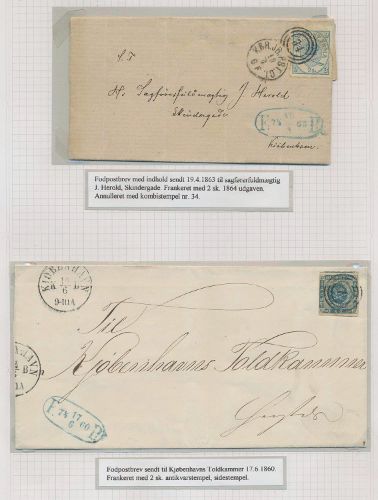 S. T.
Hr. Sagførerfuldmægtig J. Herold
Skindergade
Kjøbenhavn
F: P:
Fodpostbrev med indhold sendt 19.4.1863 til sagførerfuldmægtig
J. Herold, Skindergade. Frankeret med 2 sk. 1864 udgaven.
Annulleret med kombistempel nr. 34.
KJØBENHAVN
6
9-10A
Til
Kjøbenhavns Toldkammer
F: 17 60 P:
6
Fodpostbrev sendt til Kjøbenhavns Toldkammer 17.6.1860.
Frankeret med 2 sk. antikvarstempel, sidestempel.